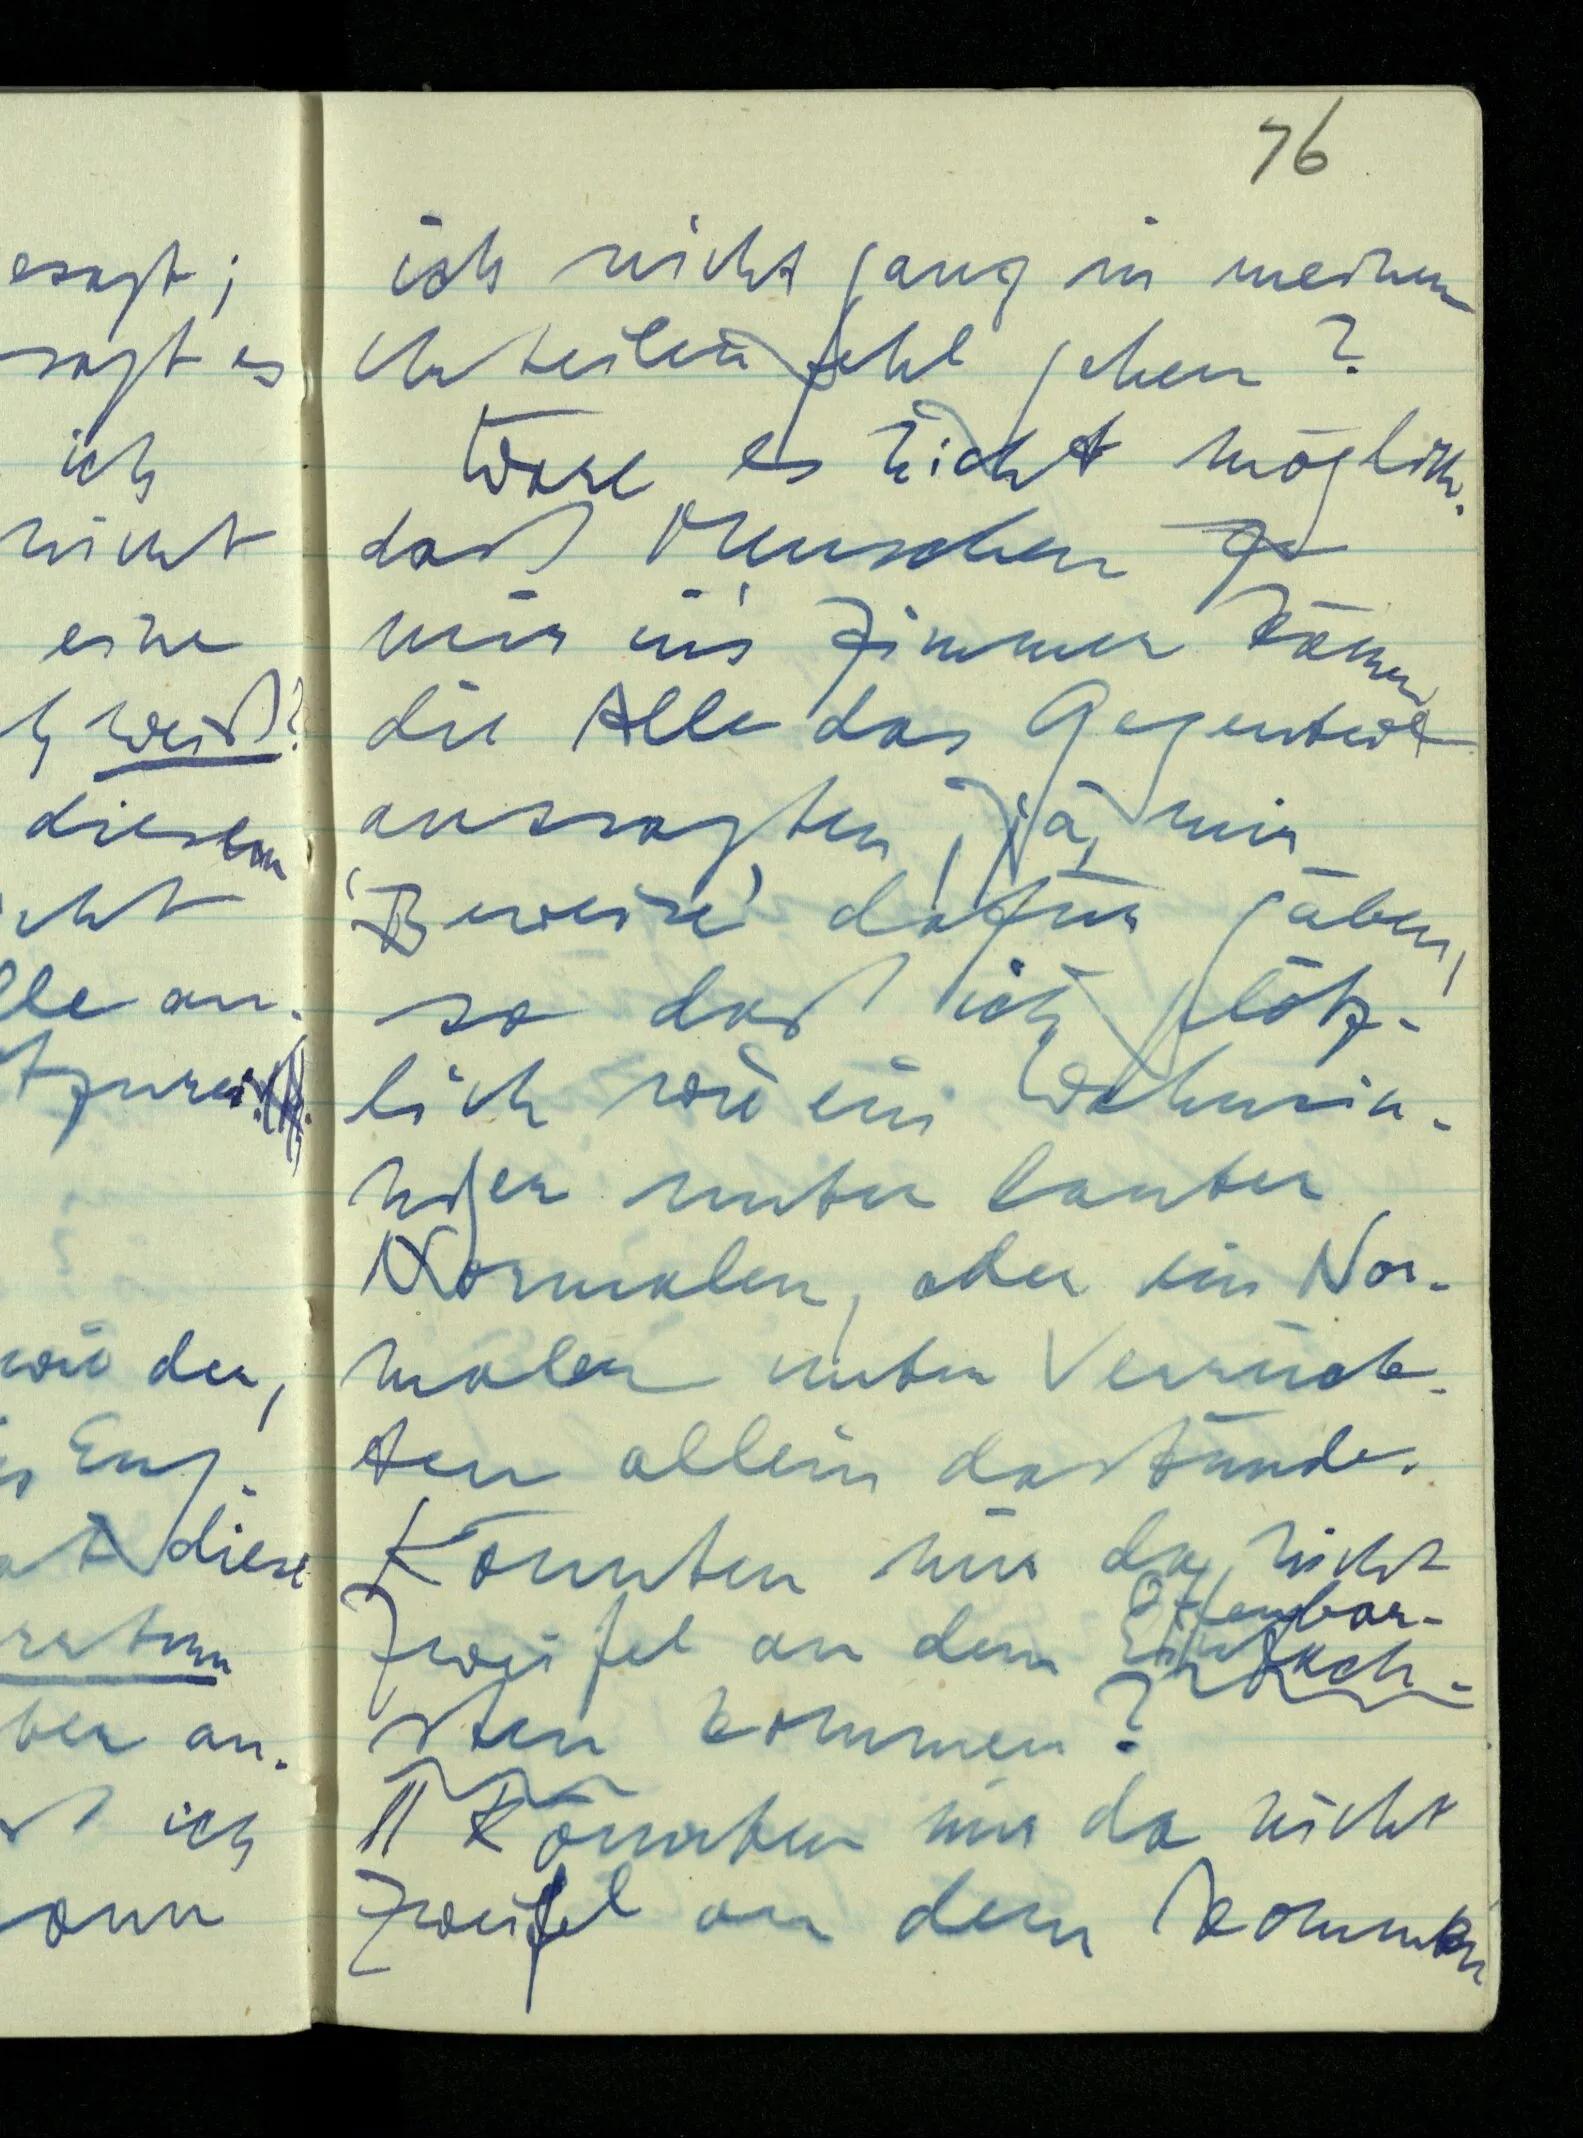 esagt;
sagt es
ich
nicht
eine
h weiß?
diesem
icht
lle an-

wie der,
es Eng-
diese
ersten
ber an-
ßt ich
ann
76
ich nicht ganz in meinen
Urteilen fehl gehen?
Wäre es nicht möglich,
daß Menschen ge
mir in's Zimmer kämen
die Alle das Gegenteil
aussagten, ja, mir
'Beweise' dafür gäben,
so daß ich plötz-
lich wie ein Wahnsin-
niger unter lauter
Normalen, oder ein Nor-
maler unter Verrück-
ten allein dastünde.
Könnten mir da nicht
Offenbar-
Zweifel an dem
sten kommen?
\\ Könnten mir da nicht
Zweifel an dem kommen